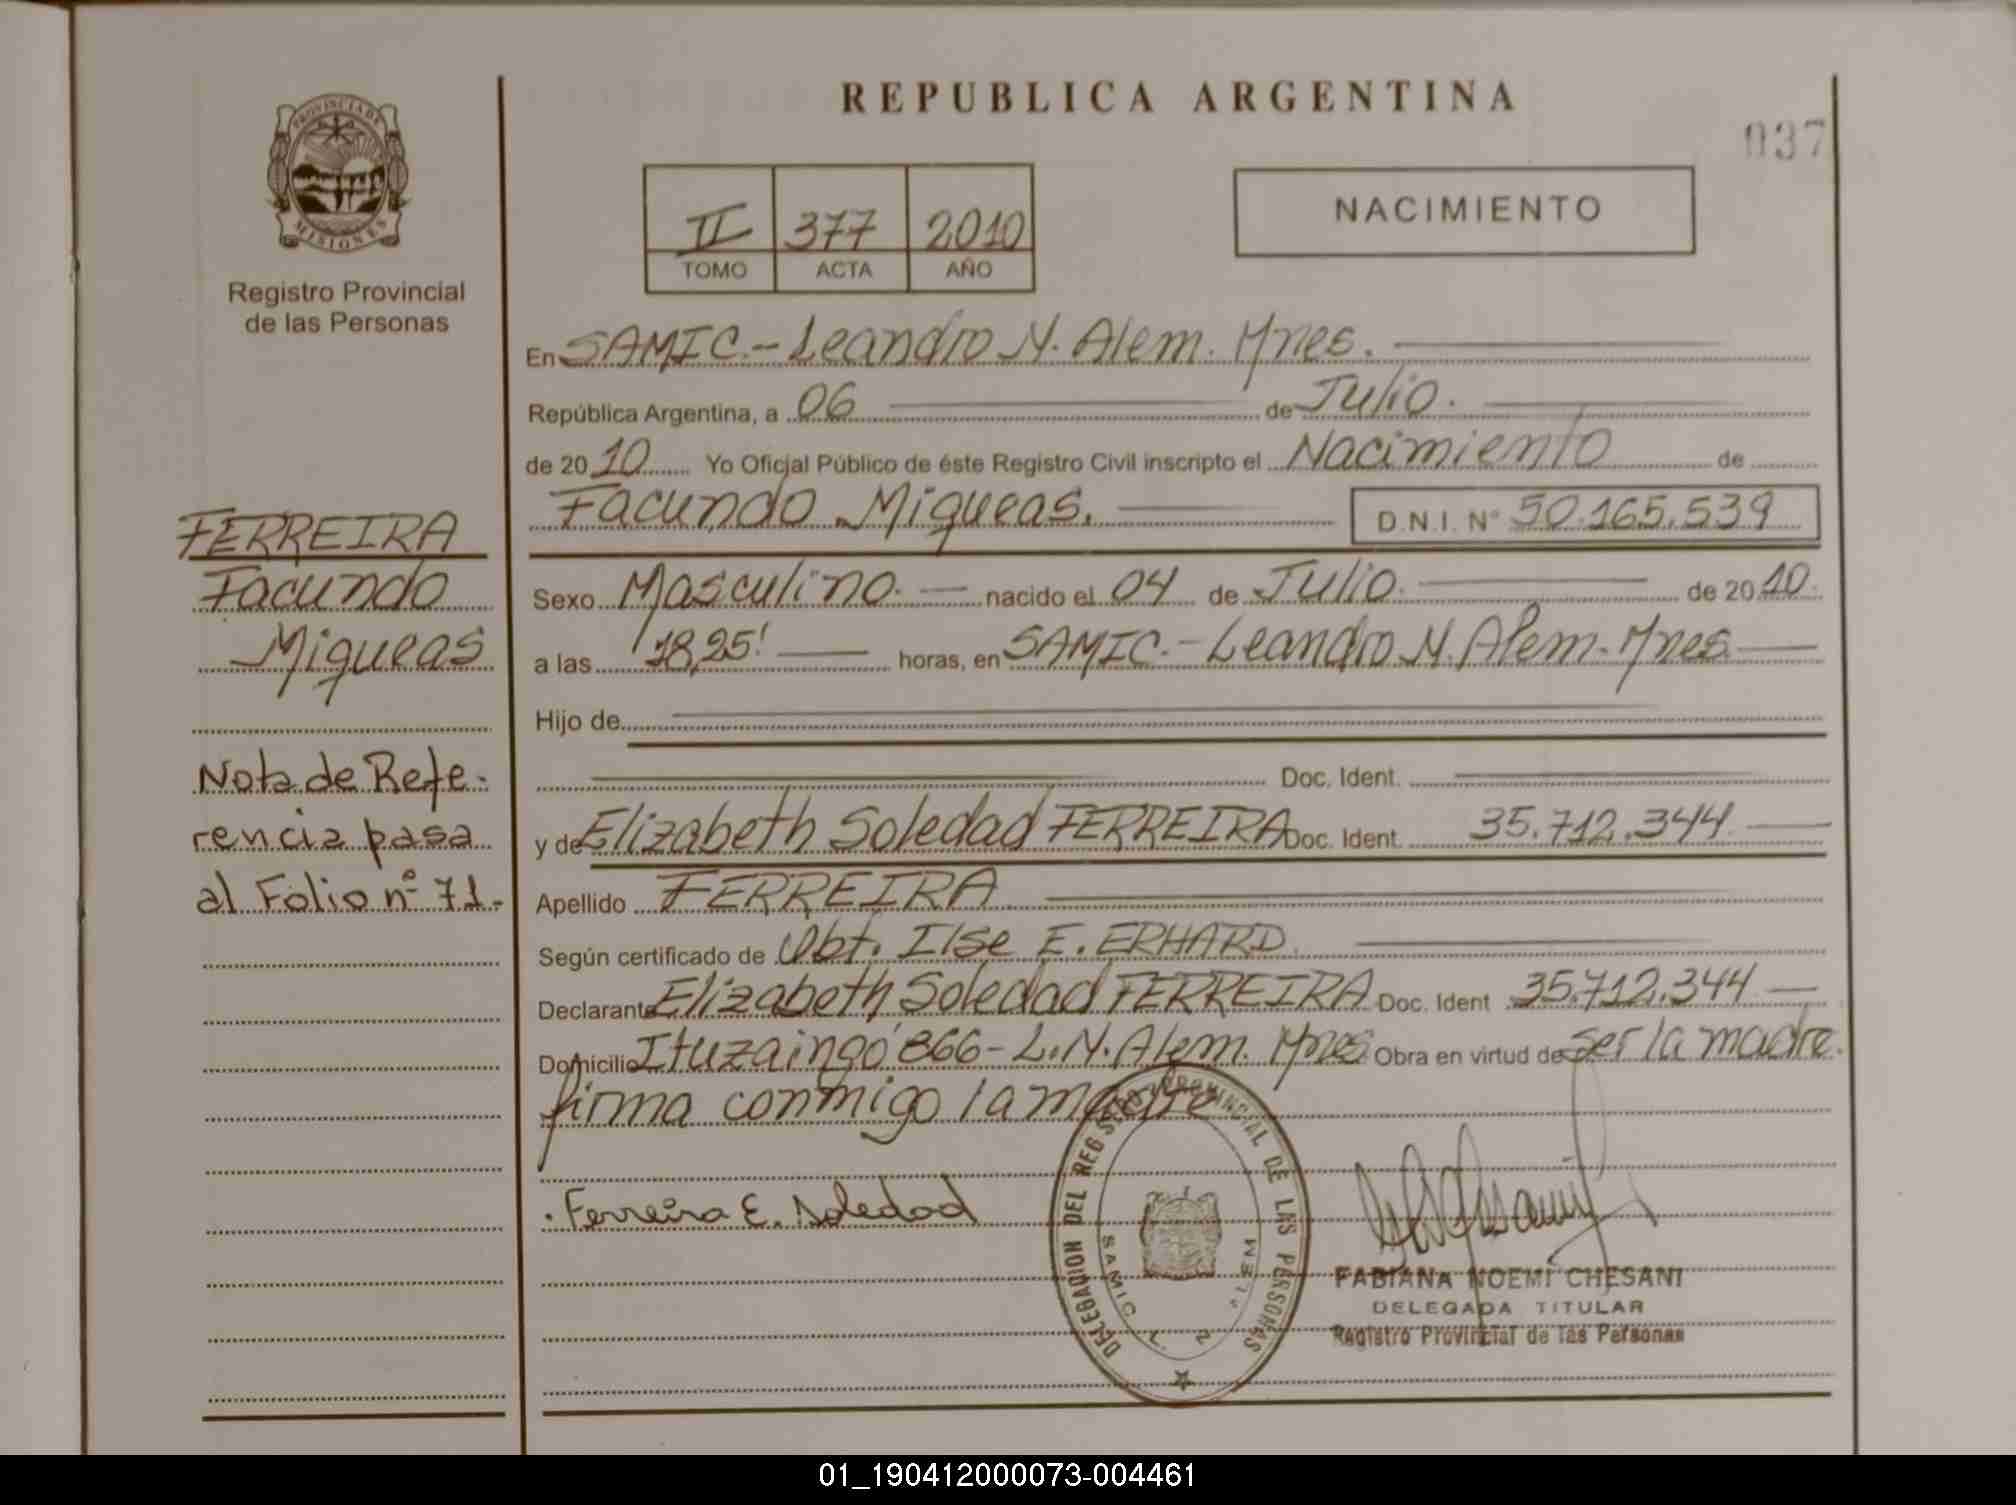 REPUBLICA ARGENTINA
037
PROVINCIA DE
MISIONES
Registro Provincial
de las Personas
II 377 2010
TOMO ACTA AÑO
NACIMIENTO
En SAMIC.- Leandro N. Alem. Mnes.
República Argentina, a 06 de Julio.
de 2010 Yo Oficial Público de éste Registro Civil inscripto el Nacimiento de
Facundo Miqueas. D.N.I. N° 50.165.539
FERREIRA
Facundo
Miqueas
Nota de Refe-
rencia pasa
al Folio nº 71.-
Sexo Masculino. nacido el 04 de Julio. de 2010.
a las 18,25' horas, en SAMIC.- Leandro N. Alem. Mnes.
Hijo de
Doc. Ident.
y de Elizabeth Soledad FERREIRA Doc. Ident. 35.712.344
Apellido FERREIRA
Según certificado de Obt. Ilse E. ERHARD.
Declarante Elizabeth Soledad FERREIRA Doc. Ident 35.712.344
Domicilio Ituzaingó 866- L.N. Alem. Mnes. Obra en virtud de ser la madre.
firma conmigo la madre
Ferreira E. Soledad
DELEGACION DEL REGISTRO PROVINCIAL DE LAS PERSONAS
SAMIC L. N. ALEM
FABIANA NOEMI CHESANI
DELEGADA TITULAR
Registro Provincial de las Personas
01_190412000073-004461